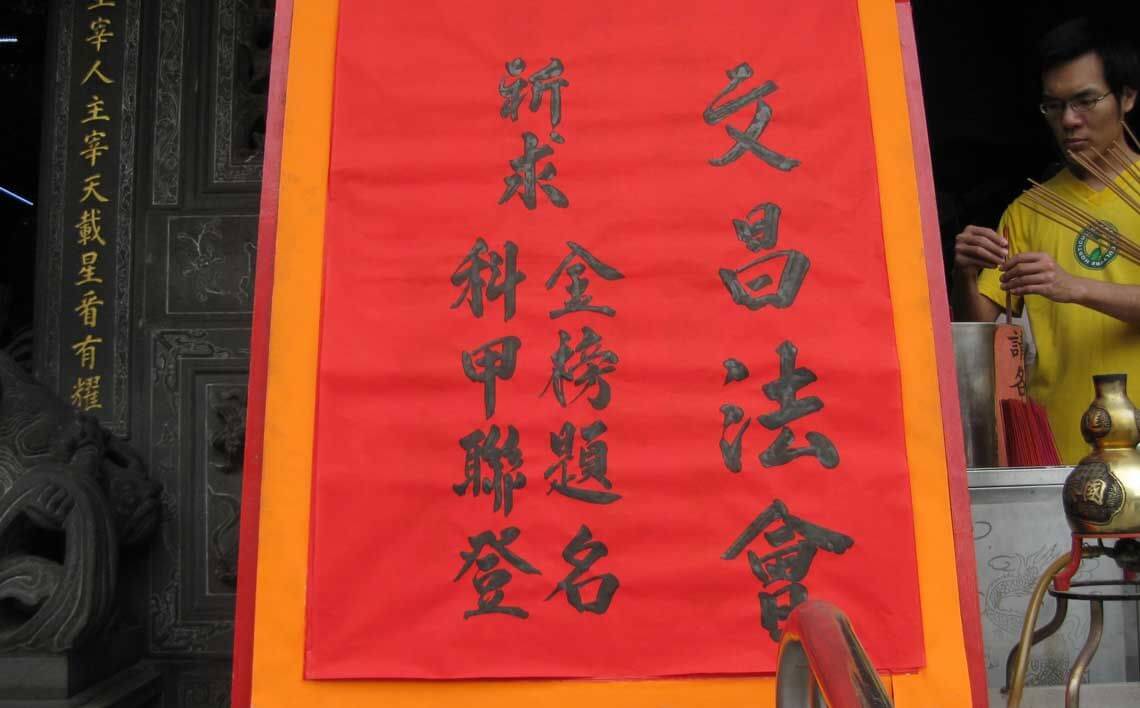 文昌法會
祈求
金榜題名
科甲聯登
宰人主宰天載星有耀
國